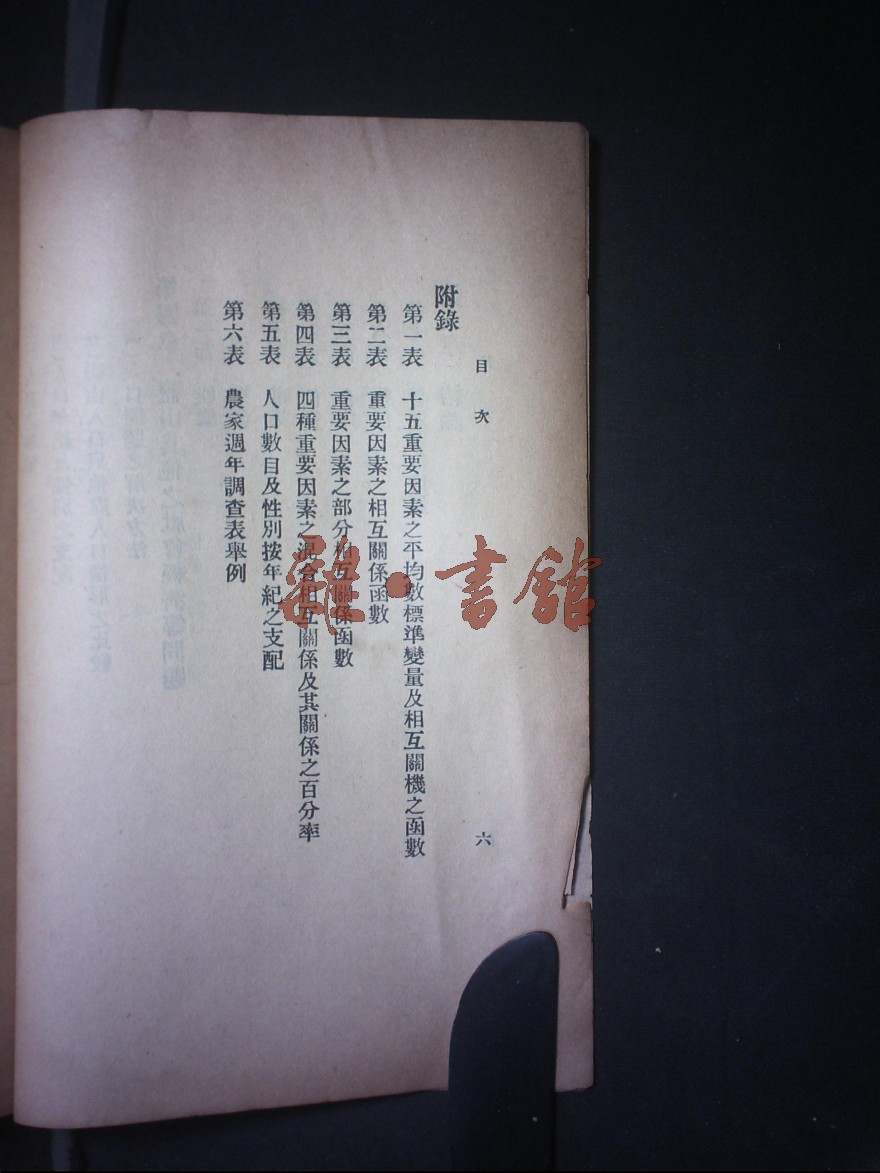 目次
六
附錄
第一表 十五重要因素之平均數標準變量及相互關機之函數
第二表 重要因素之相互關係函數
第三表 重要因素之部分相互關係函數
第四表 四種重要因素之混合相互關係及其關係之百分率
第五表 人口數目及性別按年紀之支配
第六表 農家週年調查表舉例
書館